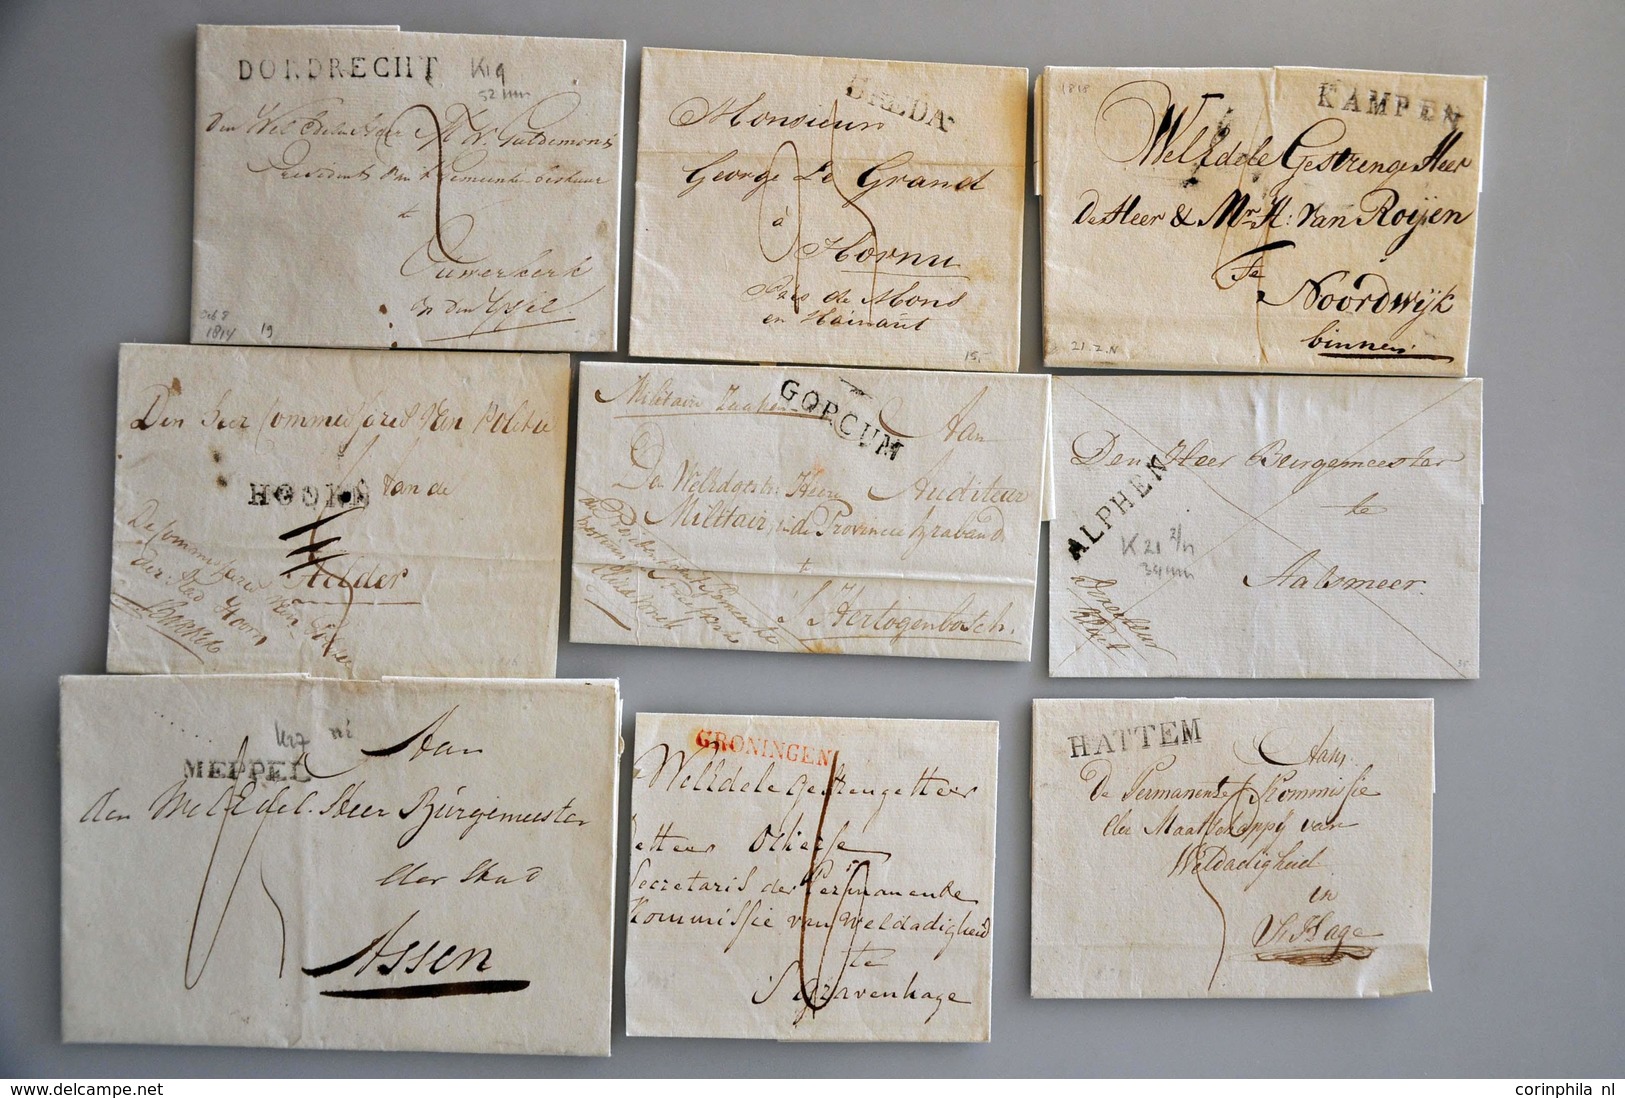 DORDRECHT
K19
52 mm
Den Wel Edelen Heer
President van t Gemeente bestuur
te
Ouwerkerk
op den Yssel
Oct 8
1814
19
BREDA
Monsieur
George Le Grand
à
Hornu
Pais de Mons
en Hainaut
15,-
1818
KAMPEN
WelEdele Gestrenge Heer
De Heer & Mr. H: van Roijen
Te
Noordwijk
binnen
21.2.N
Den Heer Commissaris van Politie
van de
HOORN
Helder
De Commissaris van
der Sted Hoorn
Militair Zaaken
GORCUM
Aan
Den WelEdgestr. Heere Auditeur
Militair, in de Provincie Braband
te
S' Hertogenbosch.
Den Heer Burgemeester
te
ALPHEN
K 21 2/n
34 mm
Aalsmeer.
35
K27
MEPPEL
Aan
den WelEdel. Heer Burgemeester
der Stad
Assen
GRONINGEN
WelEdele Gestrenge Heer
de Heer
Secretaris der Permanente
Kommissie van Weldadigheid
te
S Gravenhage
HATTEM
Aan
De Permanente Kommissie
der Maatschappij van
Weldadigheid
in
S' Hage
corinphila nl
www.delcampe.net